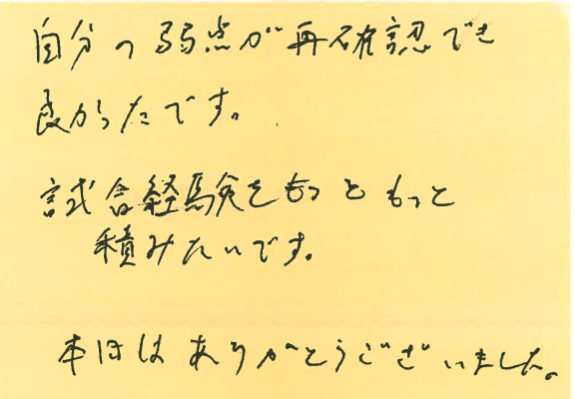 自分の弱点が再確認でき
良かったです。
試合経験をもっともっと
積みたいです。
本日はありがとうございました。